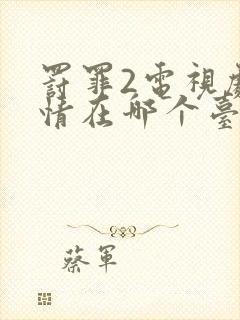 罸罪2電視劇
情在哪个臺
蔡軍